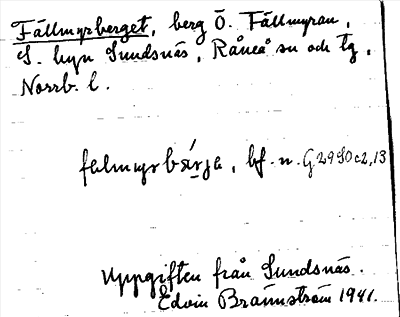 Fällmyrberget, berg Ö. Fällmyran,
S. byn Sundsnäs, Råneå sn och tg,
Norrb. l.
bf. n.
Uppgiften från Sundsnäs.
Edvin Brännström 1941.